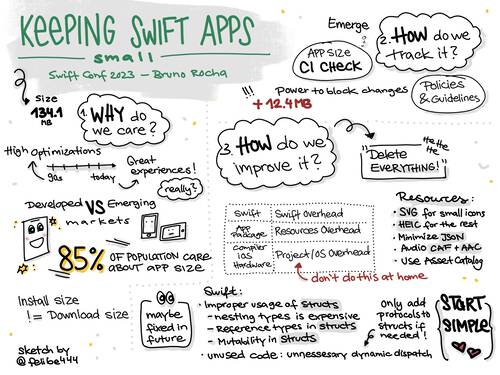 KEEPING SWIFT APPS
small
Swift Conf 2023 — Bruno Rocha
Size
134.1
MB
1. WHY do
we care?
High Optimizations
Great
experiences!
90s
today
really?
Developed VS Emerging
markets
85% OF POPULATION CARE
ABOUT APP SIZE
Install size
!= Download size
maybe
fixed in
future
sketch by
@felibe444
Emerge
APP SIZE
CI CHECK
2. HOW do we
track it?
Policies
& Guidelines
!!! Power to block changes
+ 12.4MB
3. HOW do we
improve it?
He He
He
He
"Delete
EVERYTHING!"
Swift
Swift Overhead
App
Package
Resources Overhead
Compiler
iOS
Hardware
Project/OS Overhead
don't do this at home
Resources:
• SVG for small icons
• HEIC for the rest
• Minimize JSON
• Audio CAF + AAC
• Use Asset Catalog
Swift:
• Improper usage of structs
- nesting types is expensive
- Reference types in structs
- Mutability in structs
• unused code: unnessesary dynamic dispatch
only add
protocols to
structs if
needed!
START
SIMPLE